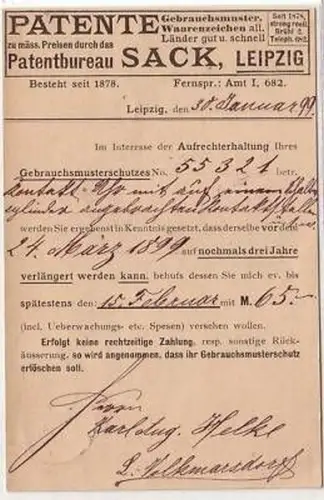 PATENTE Gebrauchsmuster,
Waarenzeichen all.
zu mäss. Preisen durch das Länder gut u. schnell
Seit 1878,
streng reell
Brühl 2
Teleph. 682.
Patentbureau SACK, LEIPZIG
Besteht seit 1878. Fernspr.: Amt I, 682.
Leipzig, den 30. Januar 99.
Im Interesse der Aufrechterhaltung Ihres
Gebrauchsmusterschutzes No. 55321 betr.
Kontakt- mit auf einem
cylinder angebrachten Kontakt
werden Sie ergebenst in Kenntnis gesetzt, dass derselbe vor dem
24. März 1899 auf nochmals drei Jahre
verlängert werden kann, behufs dessen Sie mich ev. bis
spätestens den: 15. Februar mit M. 65.-
(incl. Ueberwachungs- etc. Spesen) versehen wollen.
Erfolgt keine rechtzeitige Zahlung, resp. sonstige Rück-
äusserung, so wird angenommen, dass ihr Gebrauchsmusterschutz
erlöschen soll.
Herrn
Karl Aug. Helke
L. Volkmarsdorf